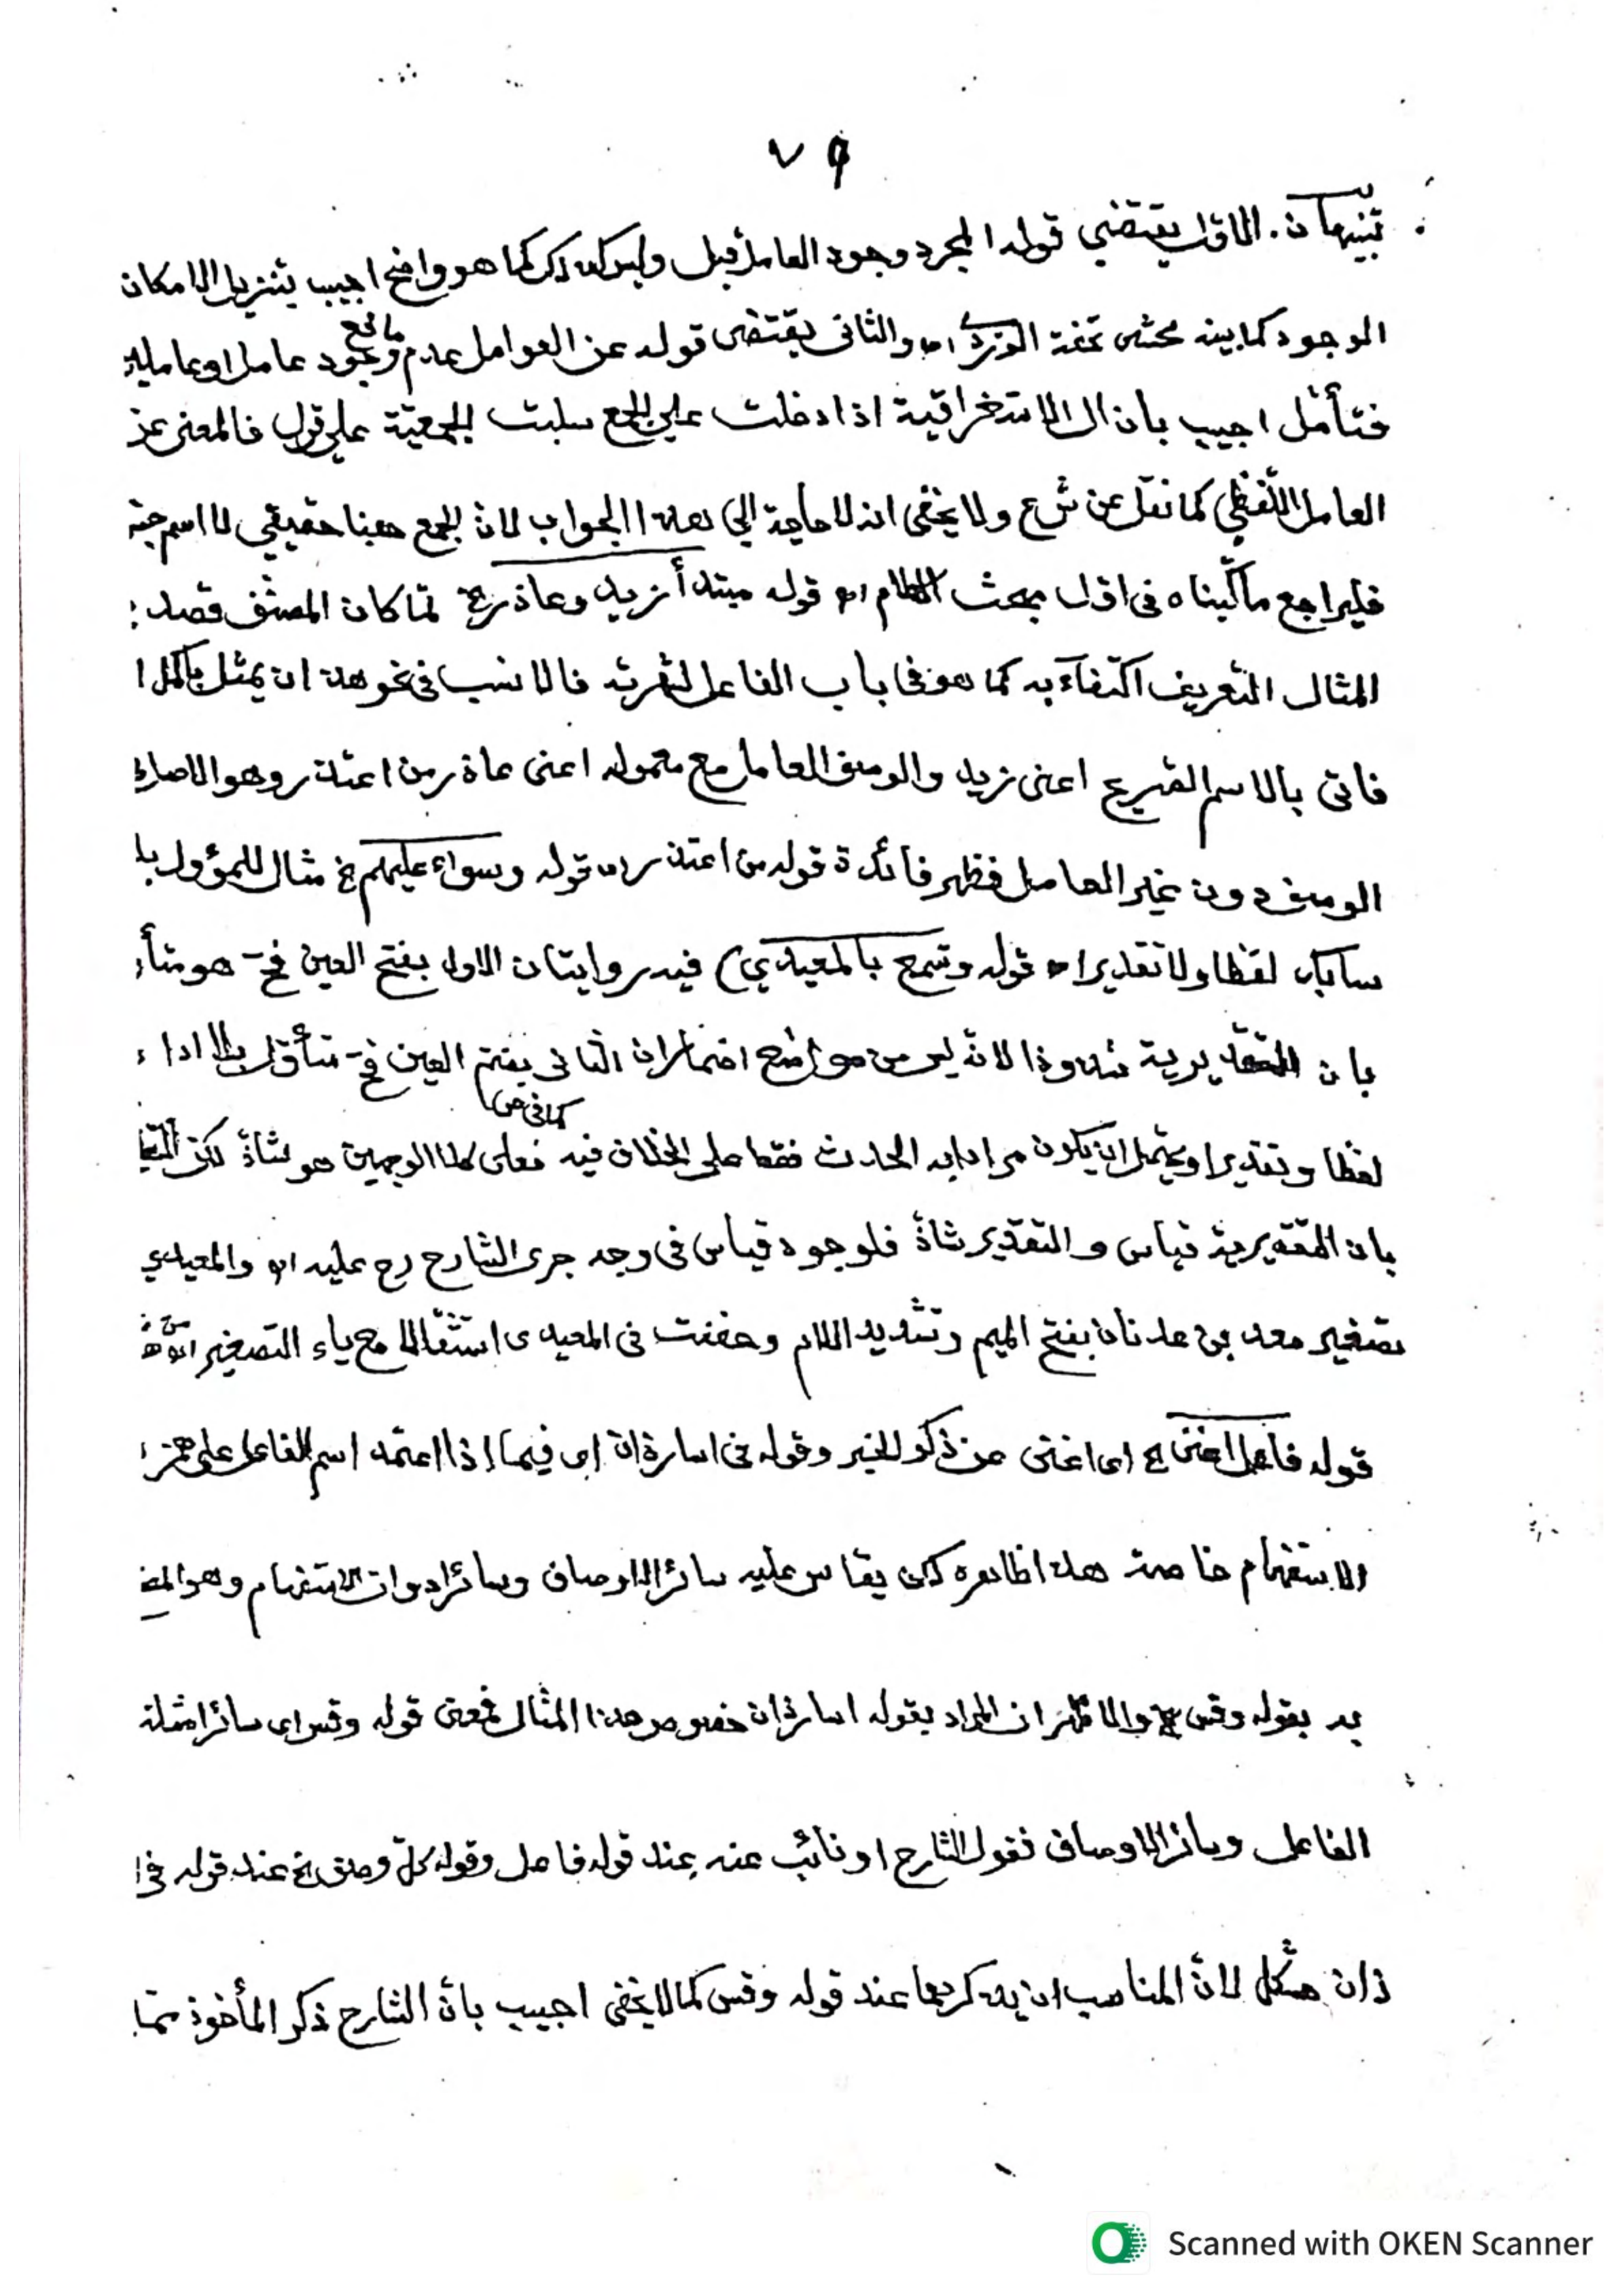 ٧٩
تنبيهان. الاوّل يقتضي قوله المجرد وجود العامل قبل وليس كذلك كما هو واضح اجيب بتنزيل الامكان
الوجود كما بينه محشى تحفة اه والثانى يقتضى قوله عن العوامل عدم مانع وجود عامل او عاملين
فتأمّل اجيب بان ال الاستغراقية اذا دخلت على الجمع سلبت الجمعيّة على قول فالمعنى عن
العامل اللّفظي كما نقل عن ش ع ولا يخفى انه لا حاجة الي هذا الجواب لانّ الجمع هنا حقيقي لا اسم جنس
فليراجع ما كتبناه فى اوّل بحث الكلام اه قوله مبتدأ زيد وعاذر الخ لمّا كان المصنّف قصد
المثال التّعريف اكتفآءً به كما هو فى باب الفاعل فالانسب فى نحو هذا ان يمثل
فاتى بالاسم الصّريح اعنى زيد والوصف العامل مع معموله اعنى عاذر من اعتذر وهو الاصل
الوصف دون غير العامل فظهر فائدة قوله من اعتذر اه قوله وسواء عليهم الخ مثال للمؤول بلا
سابك لفظا ولا تقديرا اه قوله وتسمع بالمعيدي) فيه روايتان الاول بفتح العين فح هو
بان المقديرية شذوذا لانّه ليس من مواضع اضمار ان الثانى بضم العين فح متأوّل بلا اداة
كما فى ص
لفظا وتقديرا ويحتمل ان يكون مرادا به الحدث فقط على الخلاف فيه فعلى كلا الوجهين هو شاذّ لكن
بان المقديرية قياس والتقدير شاذّ فلوجود قياس فى وجه جرى الشارح رح عليه اه والمعيدي
تصغير معد بن عدنان بفتح الميم وتشديد الدال وخففت فى المعيدى استثقالا مع ياء التصغير
قوله فاعل اغنى الخ اى اغنى عن ذكر الخبر وقوله فى اسار ذان اى فيما اذا اعتمد اسم الفاعل على همزة
الاستفهام خاصة هذا ظاهره لكن يقاس عليه سائر الاوصاف وسائر ادوات الاستفهام وهو
بد بقوله وقس الخ والاظهر ان المراد بقوله اسار ذان خصوص هذا المثال فمعنى قوله وقس اى سائر امثلة
الفاعل وسائر الاوصاف فقول الشارح او نائب عنه عند قوله فاعل وقوله كلّ وصف الخ عند قوله فى ا
ذان مشكل لانّ المناسب ان يذكرهما عند قوله وقس كما لا يخفى اجيب بانّ الشارح ذكر المأخوذ ممّا
Scanned with OKEN Scanner